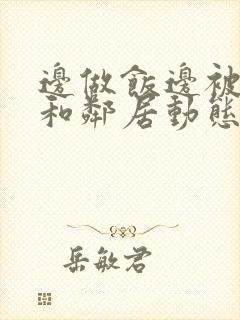 邊做飯邊被
和鄰居動態
岳敏君